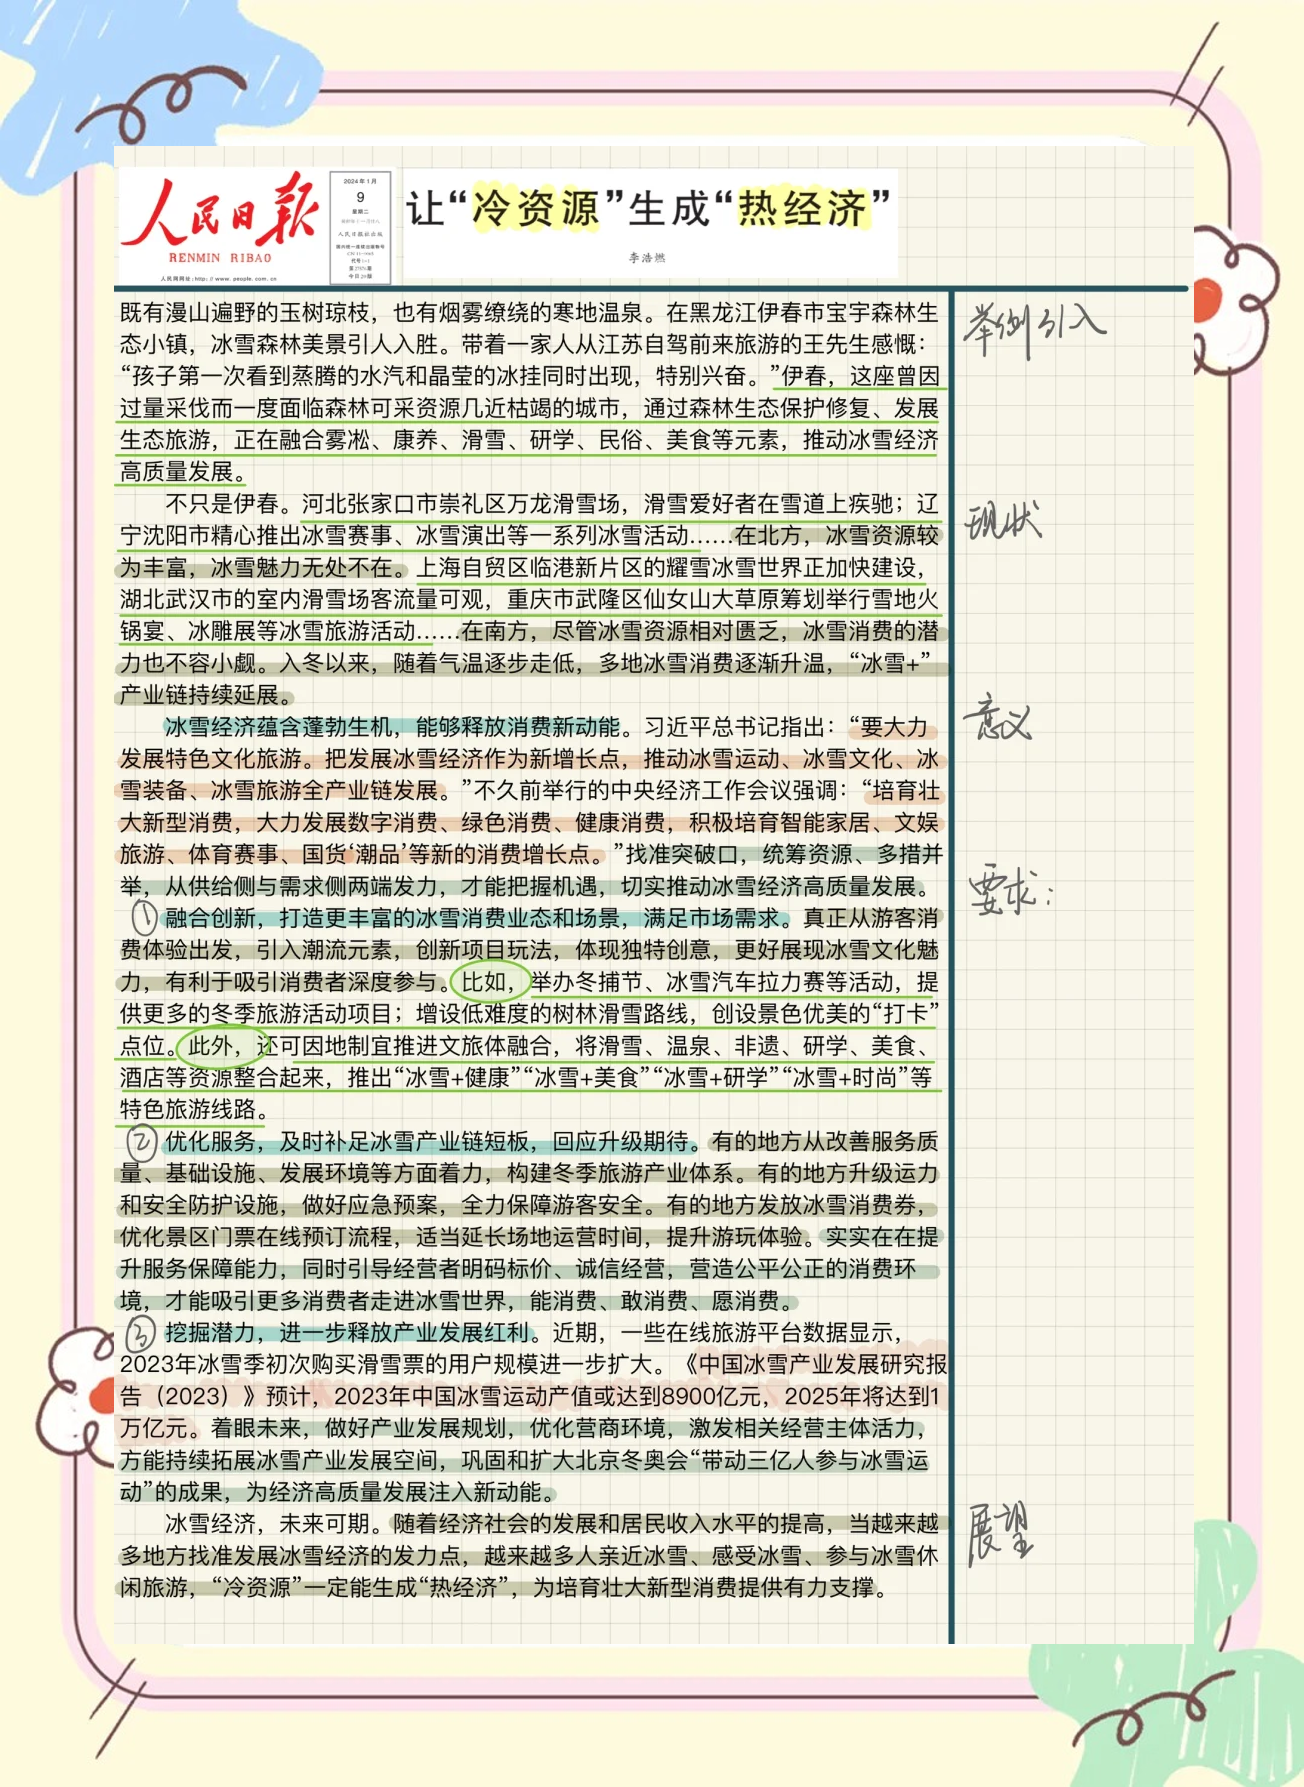 人民日报
RENMIN RIBAO
人民网网址:http://www.people.com.cn
2024年1月
9
星期二
人民日报社出版
国内统一连续出版物号
代号1-1
今日20版
让“冷资源”生成“热经济”
李浩燃
既有漫山遍野的玉树琼枝，也有烟雾缭绕的寒地温泉。在黑龙江伊春市宝宇森林生
态小镇，冰雪森林美景引人入胜。带着一家人从江苏自驾前来旅游的王先生感慨：
“孩子第一次看到蒸腾的水汽和晶莹的冰挂同时出现，特别兴奋。”伊春，这座曾因
过量采伐而一度面临森林可采资源几近枯竭的城市，通过森林生态保护修复、发展
生态旅游，正在融合雾凇、康养、滑雪、研学、民俗、美食等元素，推动冰雪经济
高质量发展。
举例引入
不只是伊春。河北张家口市崇礼区万龙滑雪场，滑雪爱好者在雪道上疾驰；辽
宁沈阳市精心推出冰雪赛事、冰雪演出等一系列冰雪活动……在北方，冰雪资源较
为丰富，冰雪魅力无处不在。上海自贸区临港新片区的耀雪冰雪世界正加快建设，
湖北武汉市的室内滑雪场客流量可观，重庆市武隆区仙女山大草原筹划举行雪地火
锅宴、冰雕展等冰雪旅游活动……在南方，尽管冰雪资源相对匮乏，冰雪消费的潜
力也不容小觑。入冬以来，随着气温逐步走低，多地冰雪消费逐渐升温，“冰雪+”
产业链持续延展。
现状
冰雪经济蕴含蓬勃生机，能够释放消费新动能。习近平总书记指出：“要大力
发展特色文化旅游。把发展冰雪经济作为新增长点，推动冰雪运动、冰雪文化、冰
雪装备、冰雪旅游全产业链发展。”不久前举行的中央经济工作会议强调：“培育壮
大新型消费，大力发展数字消费、绿色消费、健康消费，积极培育智能家居、文娱
旅游、体育赛事、国货‘潮品’等新的消费增长点。”找准突破口，统筹资源、多措并
举，从供给侧与需求侧两端发力，才能把握机遇，切实推动冰雪经济高质量发展。
意义
要求：
① 融合创新，打造更丰富的冰雪消费业态和场景，满足市场需求。真正从游客消
费体验出发，引入潮流元素，创新项目玩法，体现独特创意，更好展现冰雪文化魅
力，有利于吸引消费者深度参与。比如，举办冬捕节、冰雪汽车拉力赛等活动，提
供更多的冬季旅游活动项目；增设低难度的树林滑雪路线，创设景色优美的“打卡”
点位。此外，还可因地制宜推进文旅体融合，将滑雪、温泉、非遗、研学、美食、
酒店等资源整合起来，推出“冰雪+健康”“冰雪+美食”“冰雪+研学”“冰雪+时尚”等
特色旅游线路。
② 优化服务，及时补足冰雪产业链短板，回应升级期待。有的地方从改善服务质
量、基础设施、发展环境等方面着力，构建冬季旅游产业体系。有的地方升级运力
和安全防护设施，做好应急预案，全力保障游客安全。有的地方发放冰雪消费券，
优化景区门票在线预订流程，适当延长场地运营时间，提升游玩体验。实实在在提
升服务保障能力，同时引导经营者明码标价、诚信经营，营造公平公正的消费环
境，才能吸引更多消费者走进冰雪世界，能消费、敢消费、愿消费。
③ 挖掘潜力，进一步释放产业发展红利。近期，一些在线旅游平台数据显示，
2023年冰雪季初次购买滑雪票的用户规模进一步扩大。《中国冰雪产业发展研究报
告（2023）》预计，2023年中国冰雪运动产值或达到8900亿元，2025年将达到1
万亿元。着眼未来，做好产业发展规划，优化营商环境，激发相关经营主体活力，
方能持续拓展冰雪产业发展空间，巩固和扩大北京冬奥会“带动三亿人参与冰雪运
动”的成果，为经济高质量发展注入新动能。
冰雪经济，未来可期。随着经济社会的发展和居民收入水平的提高，当越来越
多地方找准发展冰雪经济的发力点，越来越多人亲近冰雪、感受冰雪、参与冰雪休
闲旅游，“冷资源”一定能生成“热经济”，为培育壮大新型消费提供有力支撑。
展望